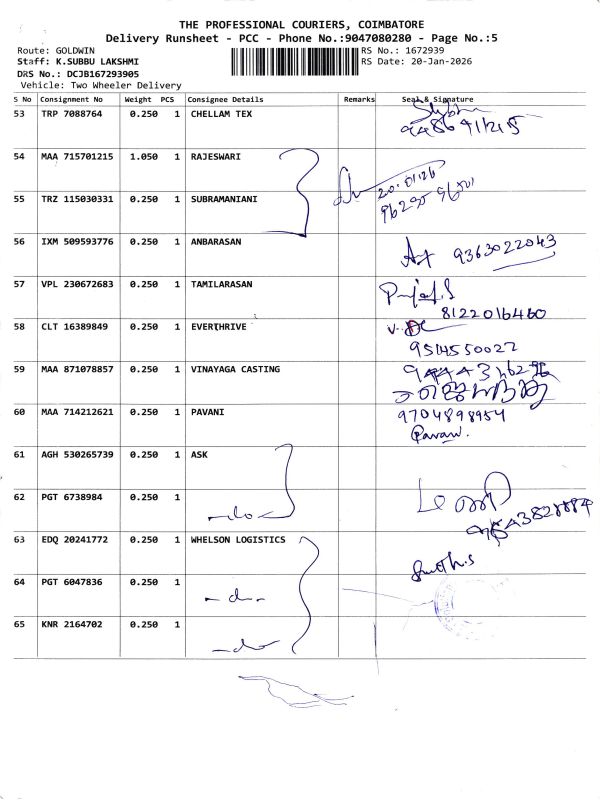 THE PROFESSIONAL COURIERS, COIMBATORE
Delivery Runsheet - PCC - Phone No.:9047080280 - Page No.:5
Route: GOLDWIN RS No.: 1672939
Staff: K.SUBBU LAKSHMI RS Date: 20-Jan-2026
DRS No.: DCJB167293905
Vehicle: Two Wheeler Delivery
S No Consignment No Weight PCS Consignee Details Remarks Seal & Signature
53 TRP 7088764 0.250 1 CHELLAM TEX
54 MAA 715701215 1.050 1 RAJESWARI
20.01.26
55 TRZ 115030331 0.250 1 SUBRAMANIANI
56 IXM 509593776 0.250 1 ANBARASAN 9363022043
57 VPL 230672683 0.250 1 TAMILARASAN
8122016460
58 CLT 16389849 0.250 1 EVERTHRIVE
9514550022
59 MAA 871078857 0.250 1 VINAYAGA CASTING
60 MAA 714212621 0.250 1 PAVANI 9704898954
Pavani.
61 AGH 530265739 0.250 1 ASK
62 PGT 6738984 0.250 1
-do-
63 EDQ 20241772 0.250 1 WHELSON LOGISTICS
64 PGT 6047836 0.250 1
-do-
65 KNR 2164702 0.250 1
-do-